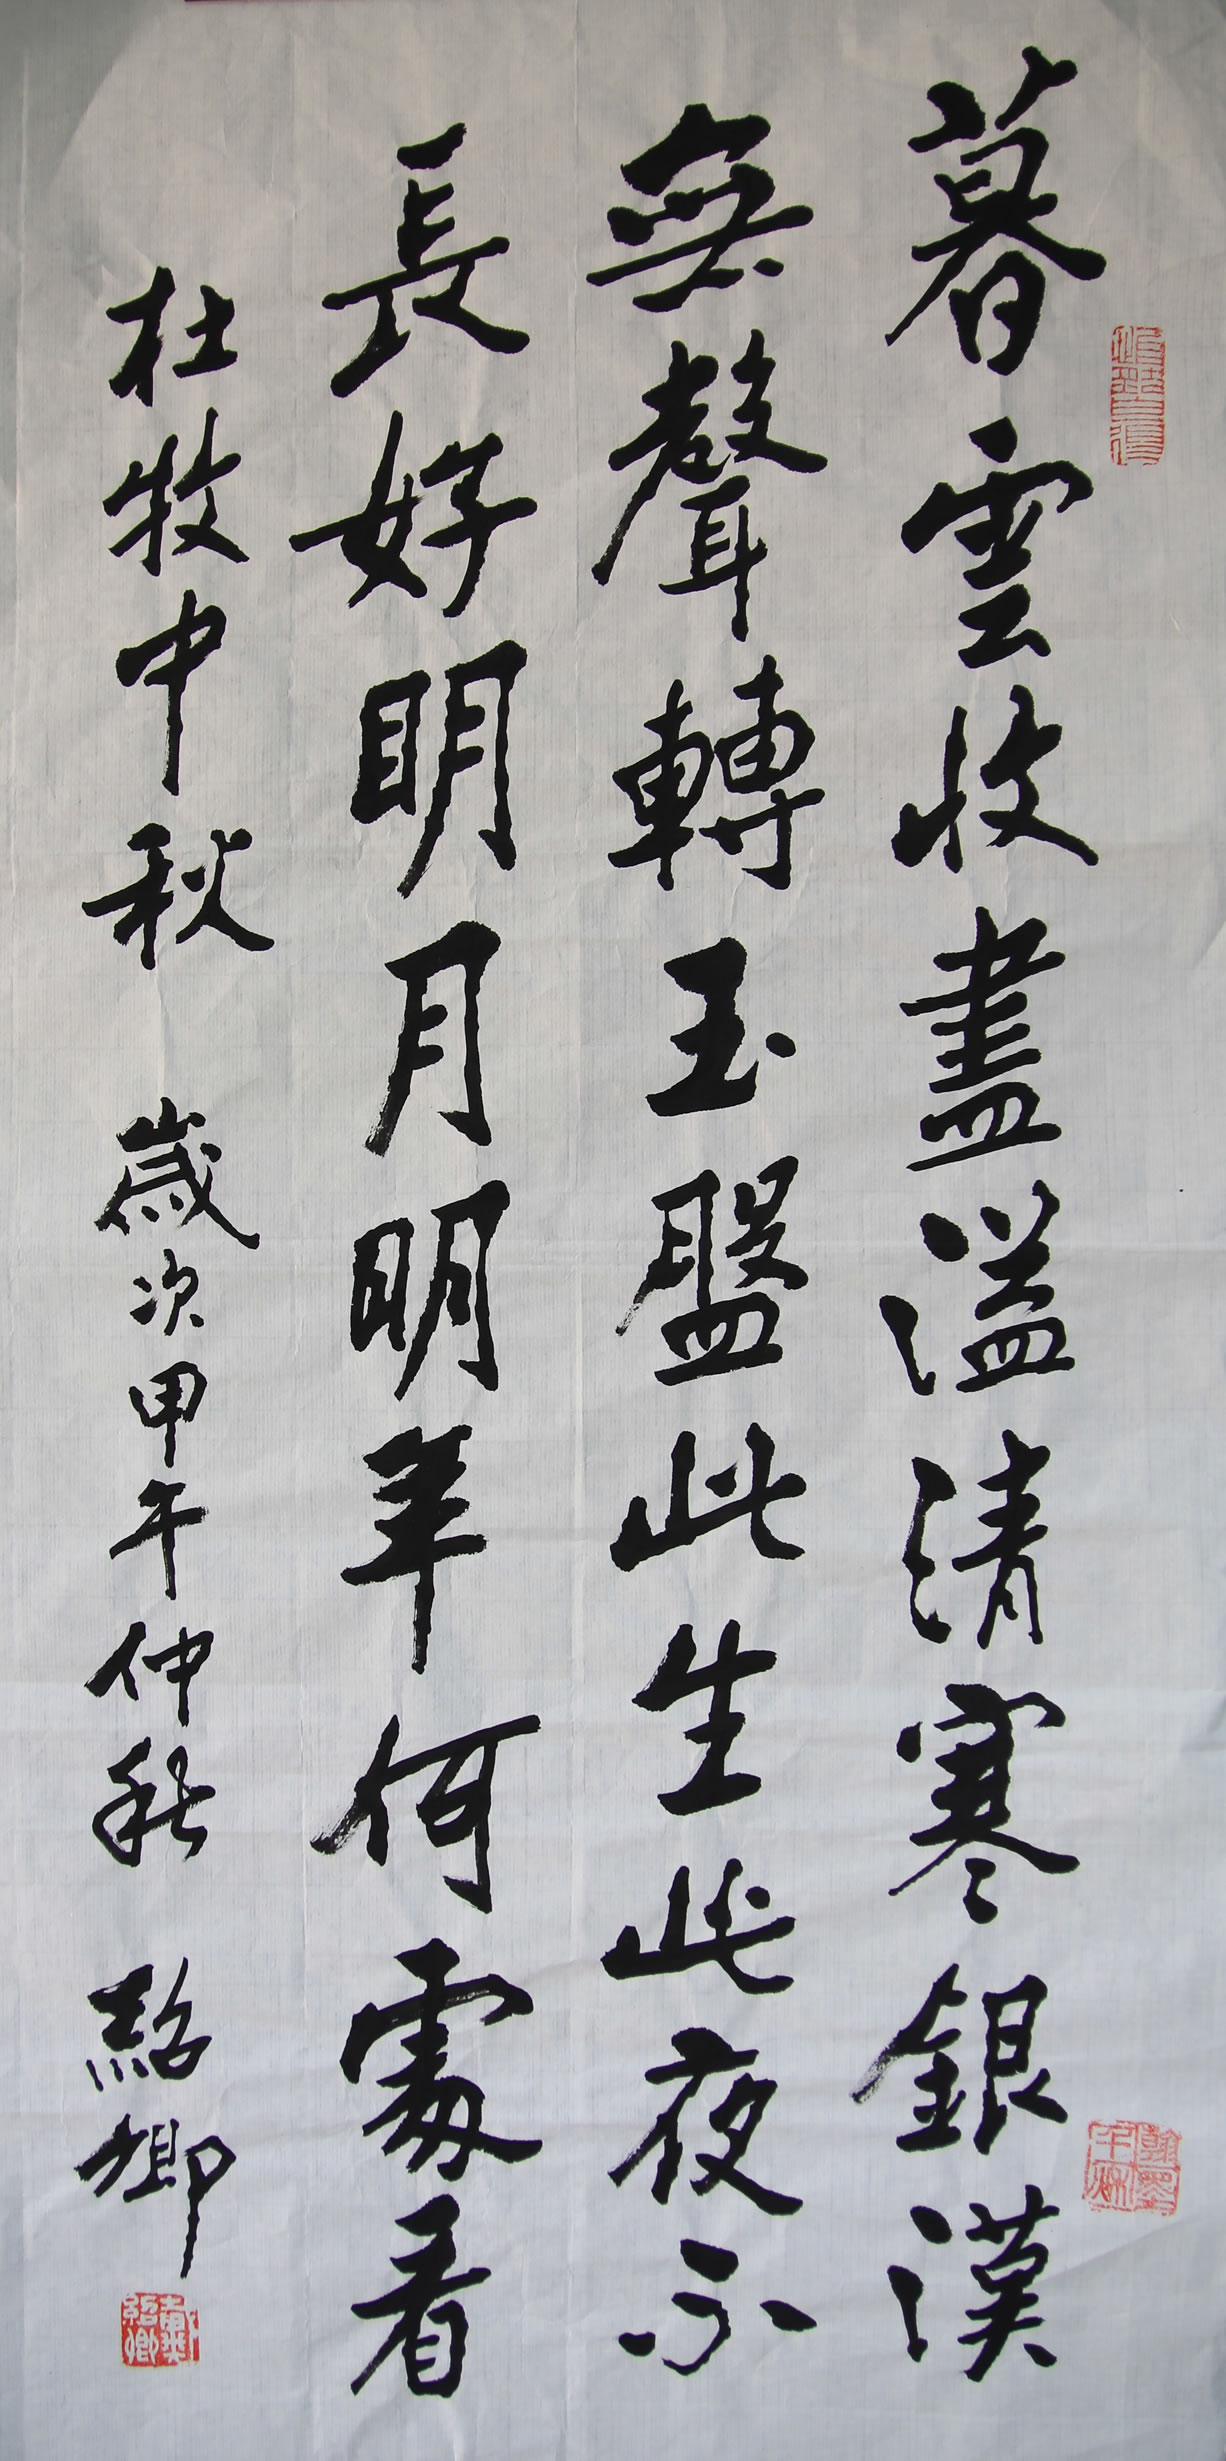 暮雲收盡溢清寒銀漢
無聲轉玉盤此生此夜不
長好明月明年何處看
杜牧中秋 歲次甲午仲秋 紹卿
翰墨千秋
戴紹卿